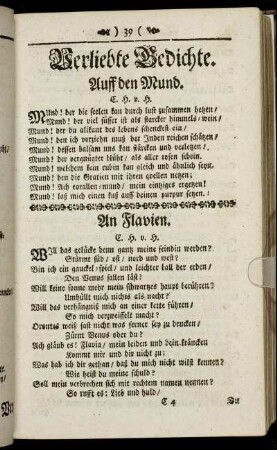 ) 39 (
Verliebte Gedichte.
Auff den Mund.
C. H. v. H.
MUnd! der die seelen kan durch lust zusammen hetzen/
Mund! der viel süsser ist als starcker himmels-wein/
Mund! der du alikant des lebens schenckest ein/
Mund! den ich vorziehn muß der Inden reichen schätzen/
Mund! dessen balsam uns kan stärcken und verletzen/
Mund! der vergnügter blüht/ als aller rosen schein.
Mund! welchem kein rubin kan gleich und ähnlich seyn.
Mund! den die Gratien mit ihren quellen netzen;
Mund! Ach corallen-mund/ mein eintziges ergetzen!
Mund! laß mich einen kuß auff deinen purpur setzen.
An Flavien.
C. H. v. H.
WIll das gelücke denn gantz meine feindin werden?
Stürmt süd/ ost/ nord und west?
Bin ich ein gauckel-spiel/ und leichter ball der erden/
Den Venus fallen läst?
Will keine sonne mehr mein schwartzes haupt berühren?
Umhüllt mich nichts als nacht?
Will das verhängniß mich an einer kette führen/
So mich verzweiffelt macht?
Orontes weiß fast nicht was ferner sey zu drucken/
Zürnt Venus oder du?
Ich gläub es! Flavia/ mein leiden und dein
Kommt mir und die nicht zu:
Was hab ich dir gethan/ daß du mich nicht wilst kennen?
Wie heist du meine schuld?
Soll mein verbrechen sich mit rechtem namen nennen?
So rufft es: Lieb und huld/
C 4